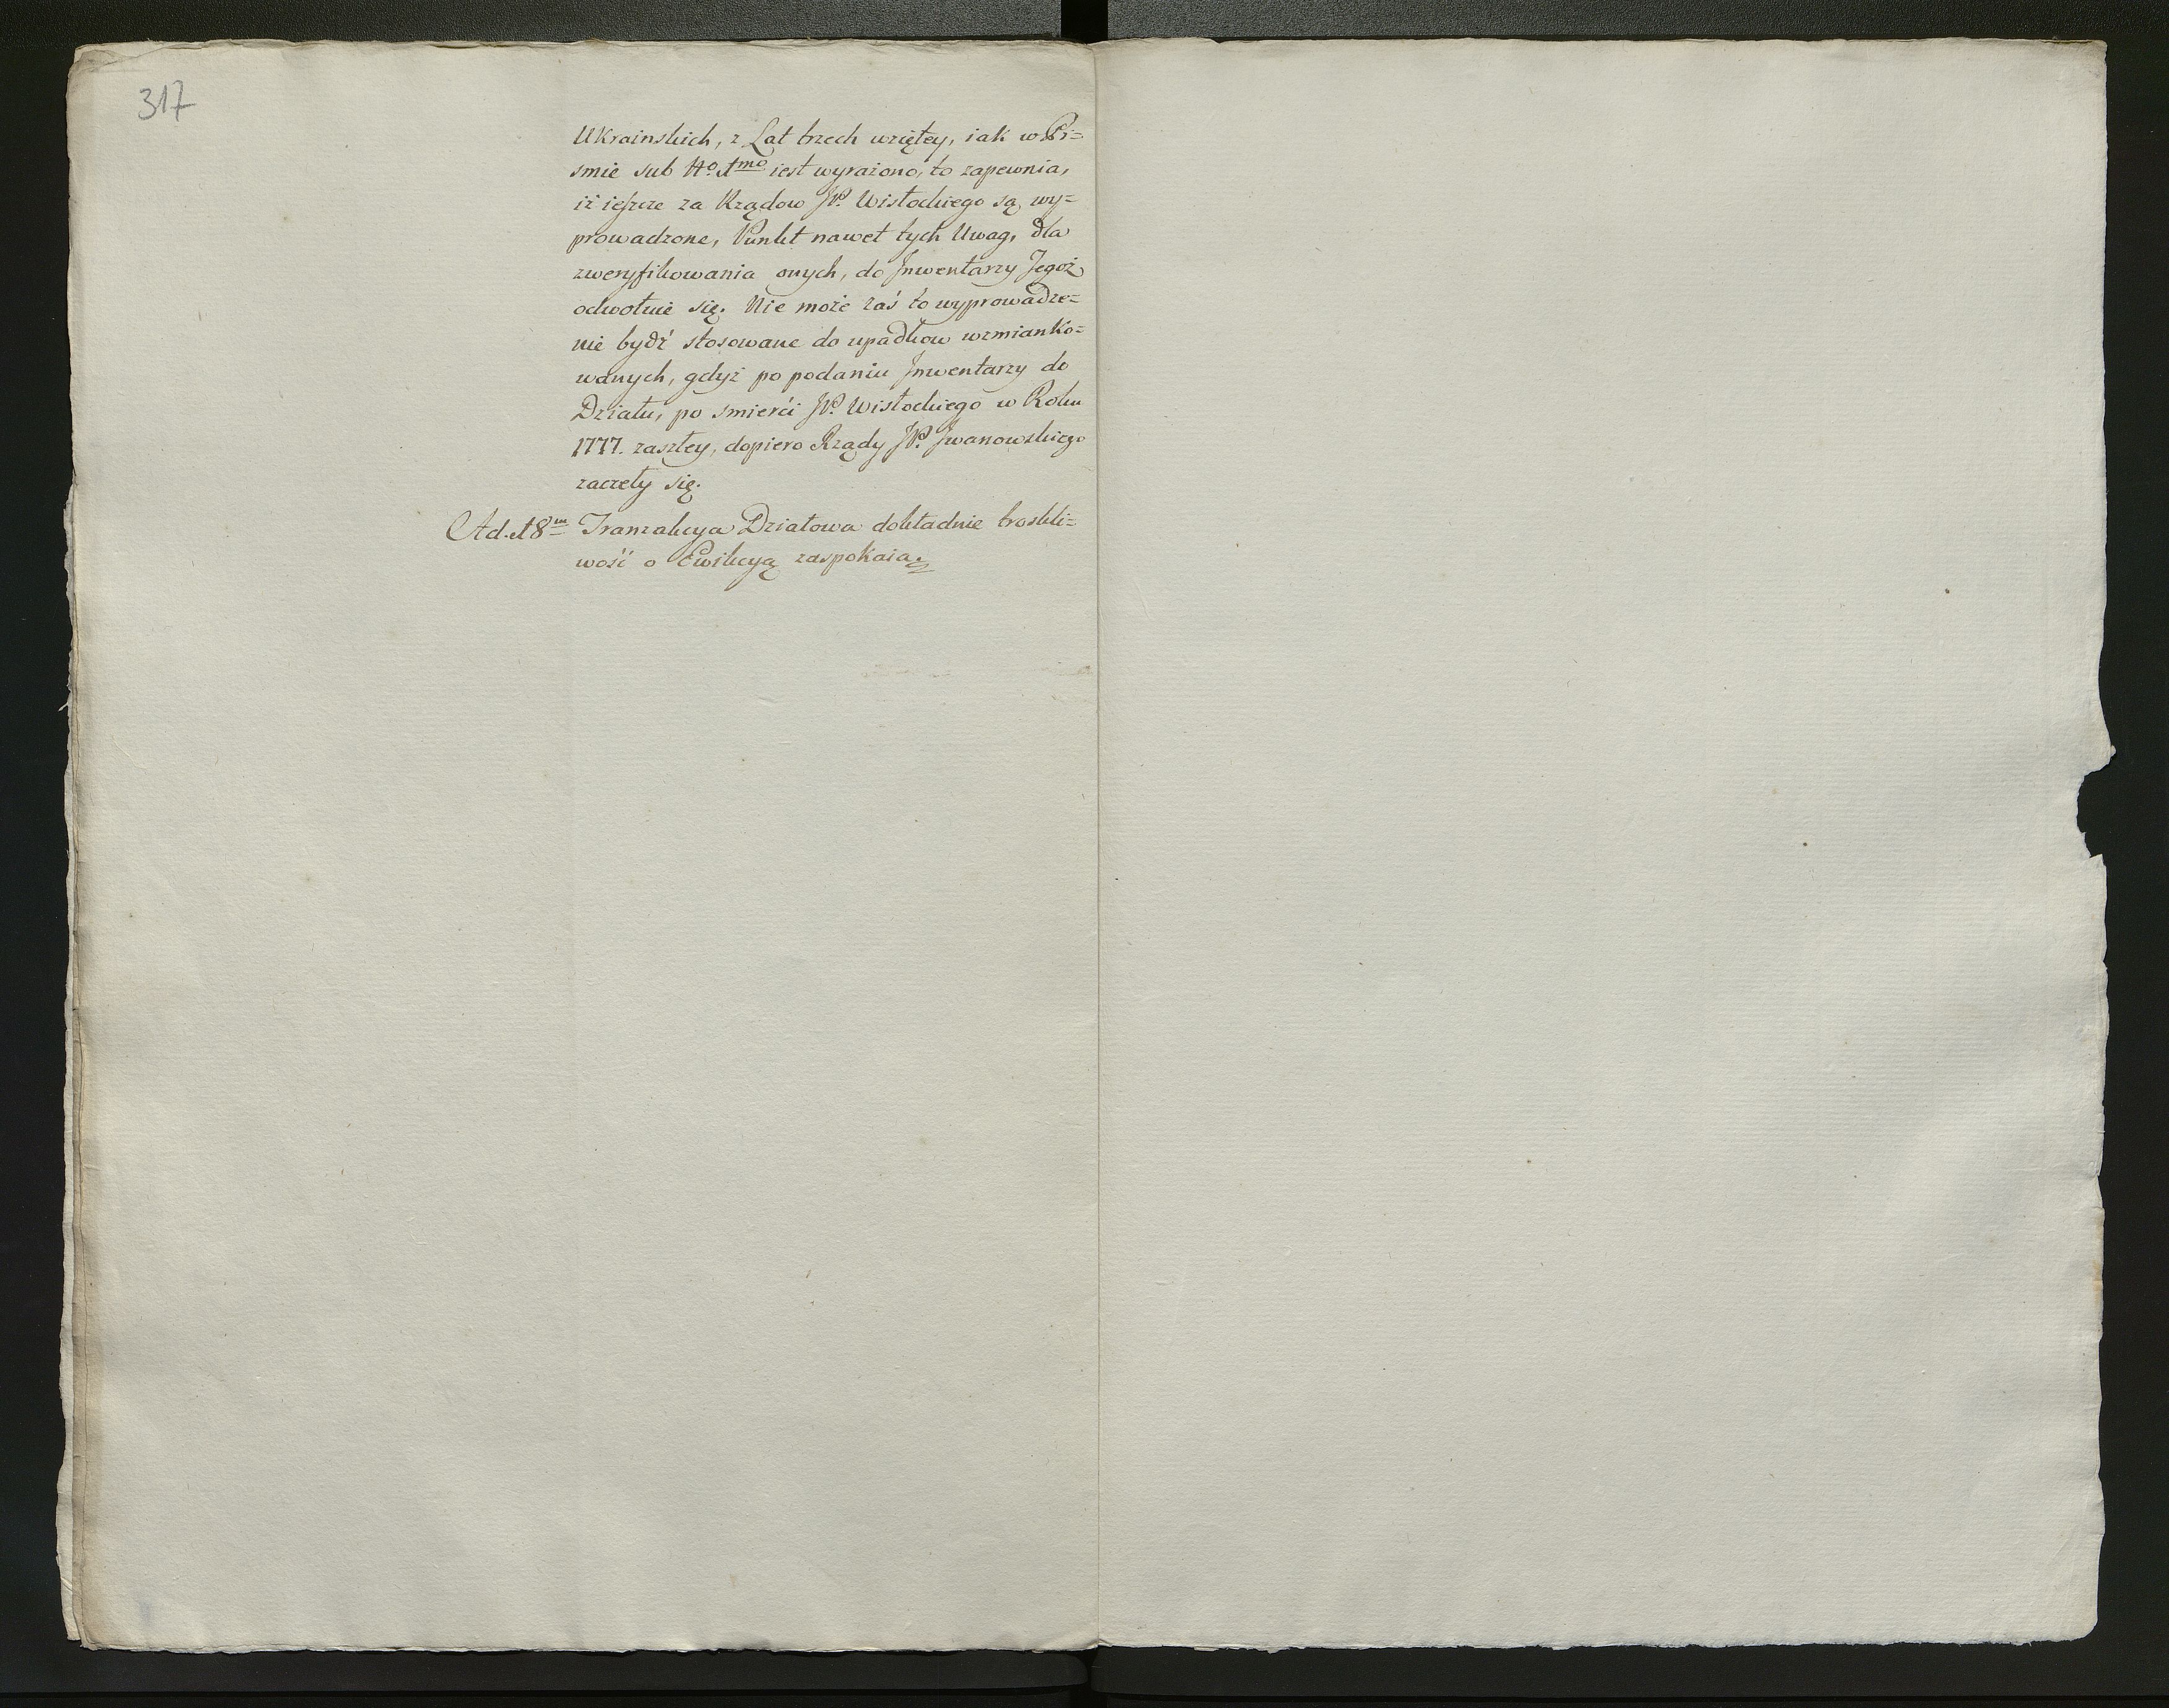 317
Ukrainskich, z Lat trzech wziętey, iak w Pi=
smie sub N<sup>o</sup> 1<sup>mo</sup> iest wyrażono, to zapewnia,
iż ieszcze za Rządow JP. Wisłockiego są wy=
prowadzone, Punkt nawet tych Uwag, dla
zweryfikowania onych, do Jnwentarzy Jegoż
odwołuie się. Nie może zaś to wyprowadze=
nie bydź stosowane do upadkow wzmianko=
wanych, gdyż po podaniu Jnwentarzy do
Działu, po smierći JP. Wisłockiego w Roku
1777. zaszłey, dopiero Rządy JP. Jwanowskiego
zaczeły się.
Ad. 18<sup>m</sup> Tranzakcya Działowa dokładnie troskli=
wość o Ewikcyą zaspokaia.